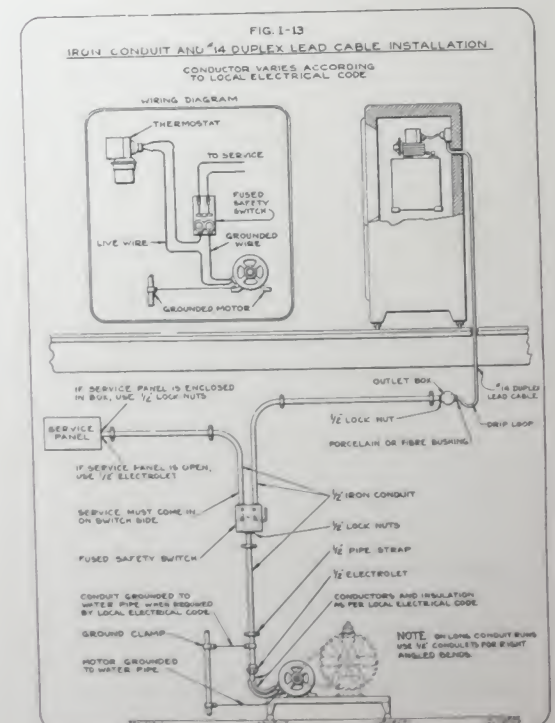 FIG. 1-13
IRON CONDUIT AND #14 DUPLEX LEAD CABLE INSTALLATION
CONDUCTOR VARIES ACCORDING
TO LOCAL ELECTRICAL CODE
WIRING DIAGRAM
THERMOSTAT
TO SERVICE
FUSED
SAFETY
SWITCH
LIVE WIRE
GROUNDED
WIRE
GROUNDED MOTOR
IF SERVICE PANEL IS ENCLOSED
IN BOX, USE 1/2" LOCK NUTS
SERVICE
PANEL
IF SERVICE PANEL IS OPEN,
USE 1/2" ELECTROLET
SERVICE MUST COME IN
ON SWITCH SIDE
FUSED SAFETY SWITCH
CONDUIT GROUNDED TO
WATER PIPE WHEN REQUIRED
BY LOCAL ELECTRICAL CODE
GROUND CLAMP
MOTOR GROUNDED
TO WATER PIPE
OUTLET BOX
1/2" LOCK NUT
PORCELAIN OR FIBRE BUSHING
#14 DUPLEX
LEAD CABLE
DRIP LOOP
1/2" IRON CONDUIT
1/2" LOCK NUTS
1/2" PIPE STRAP
1/2" ELECTROLET
CONDUCTORS AND INSULATION
AS PER LOCAL ELECTRICAL CODE
NOTE ON LONG CONDUIT RUNS
USE 1/2" CONDULETS FOR RIGHT
ANGLED BENDS